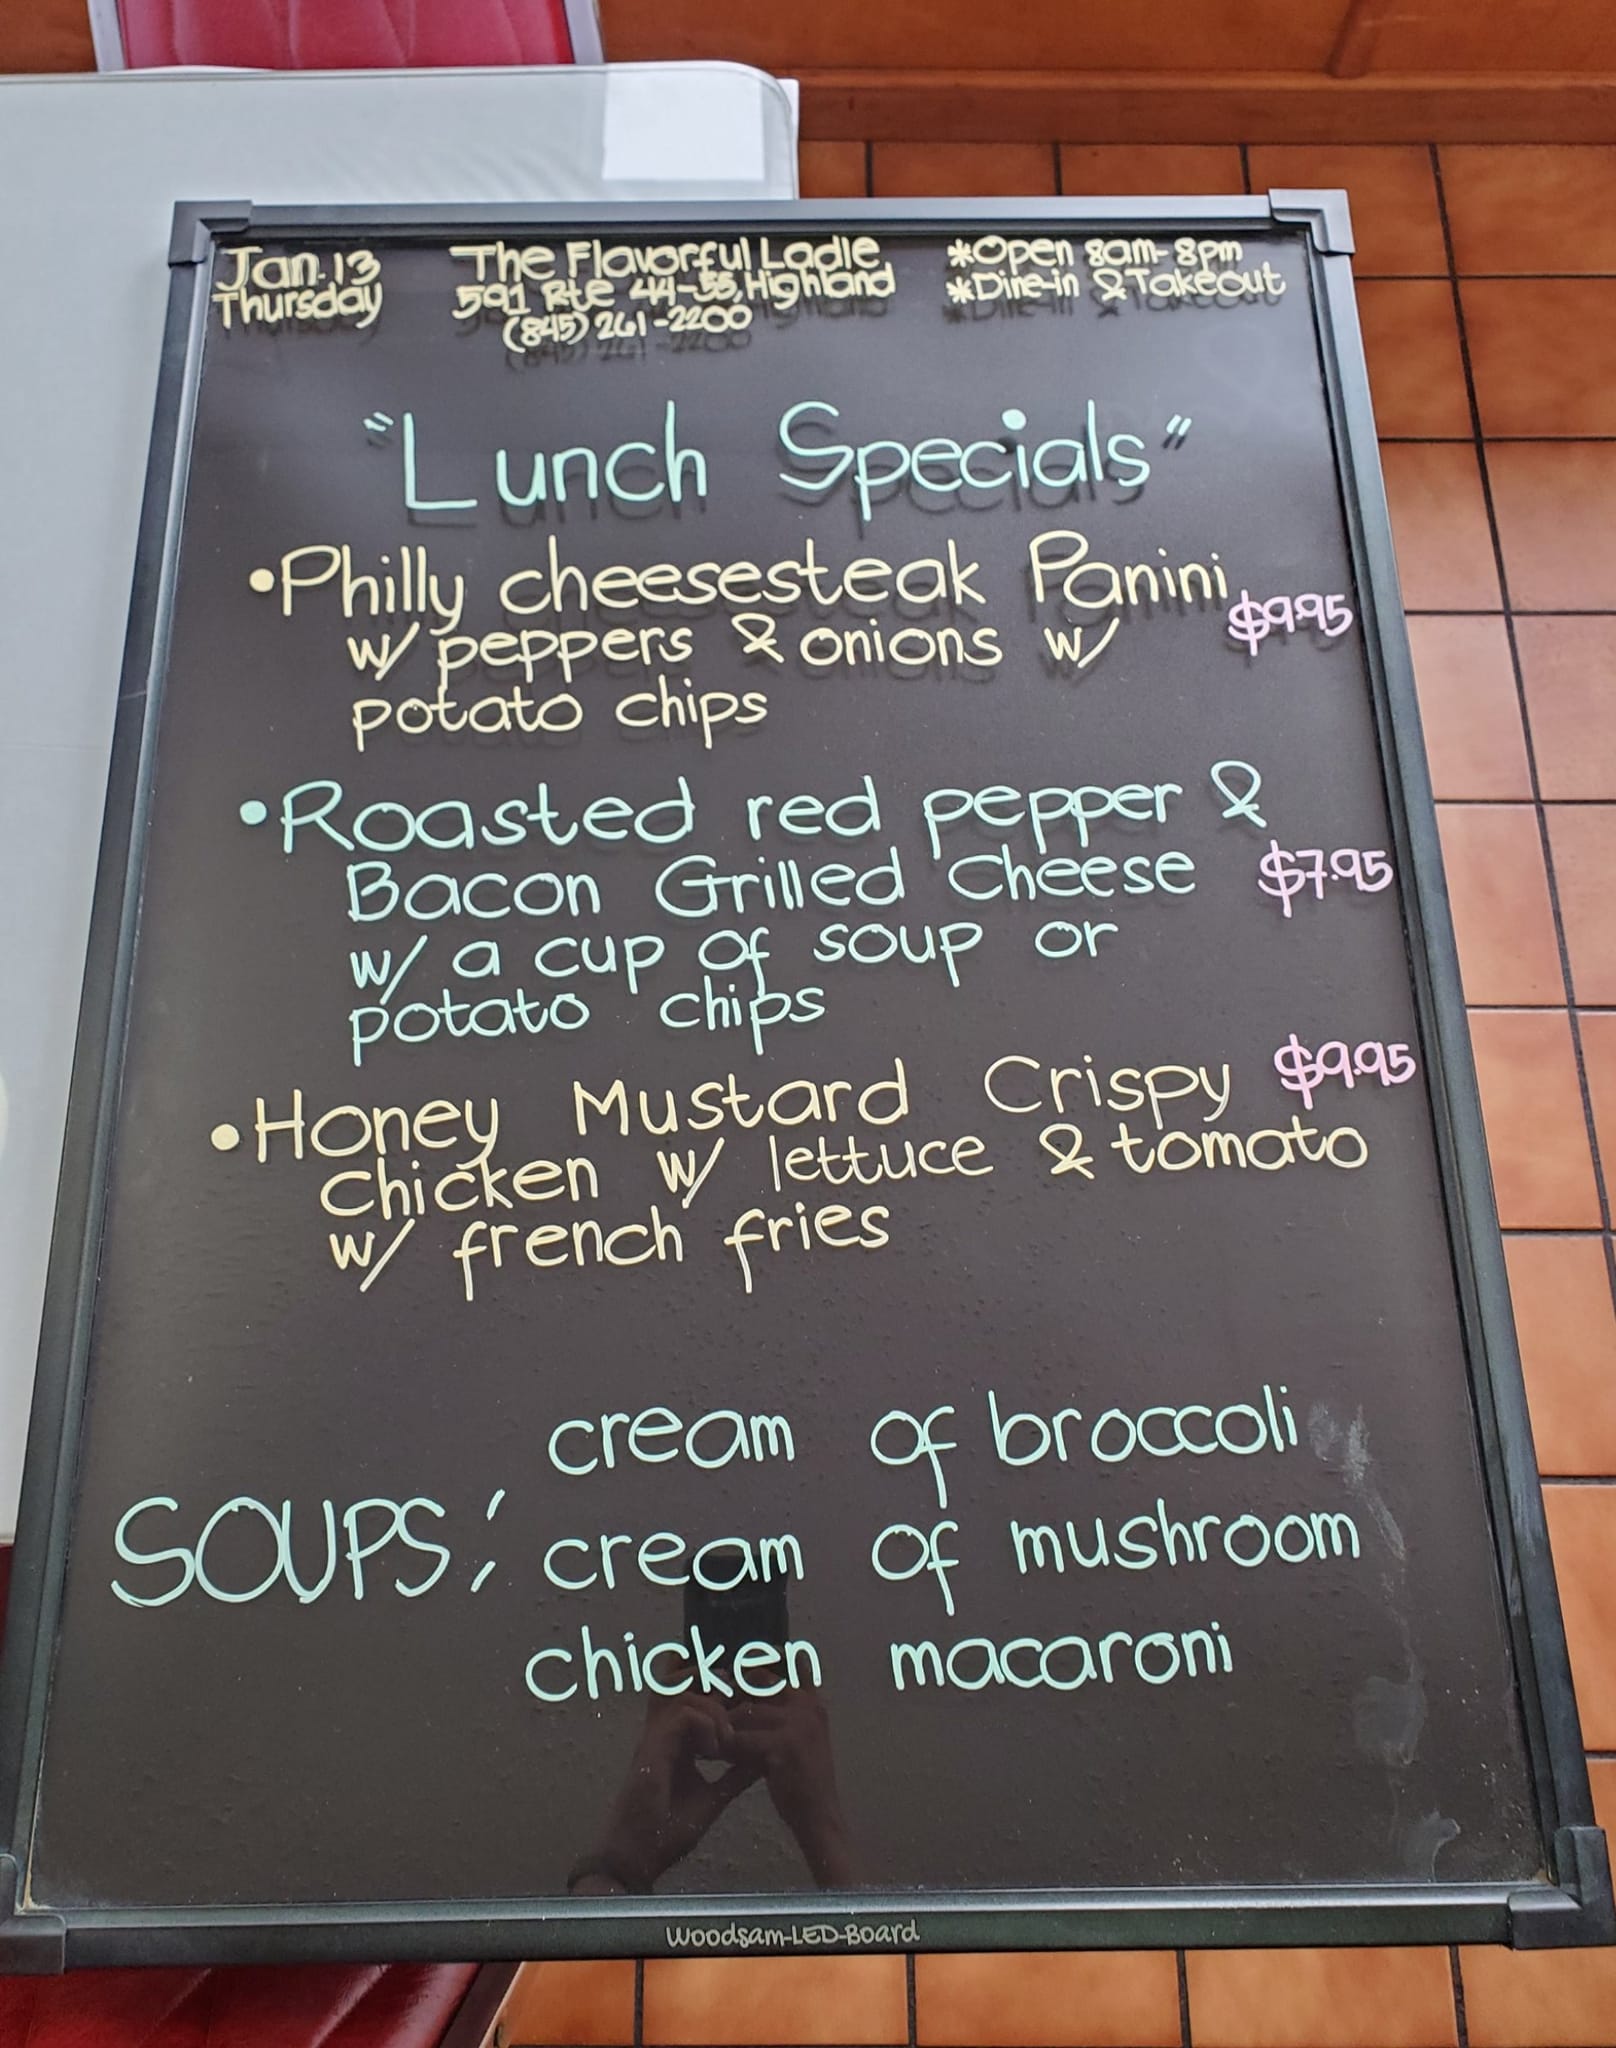 Jan. 13
Thursday
The Flavorful Ladle
591 Rte 44-55, Highland
(845) 261-2200
*Open 8am-8pm
*Dine-in & Takeout
"Lunch Specials"
•Philly cheesesteak Panini
w/ peppers & onions w/ $9.95
potato chips
•Roasted red pepper &
Bacon Grilled Cheese $7.95
w/ a cup of soup or
potato chips
•Honey Mustard Crispy $9.95
Chicken w/ lettuce & tomato
w/ french fries
cream of broccoli
SOUPS: cream of mushroom
chicken macaroni
Woodsam-LED-Board